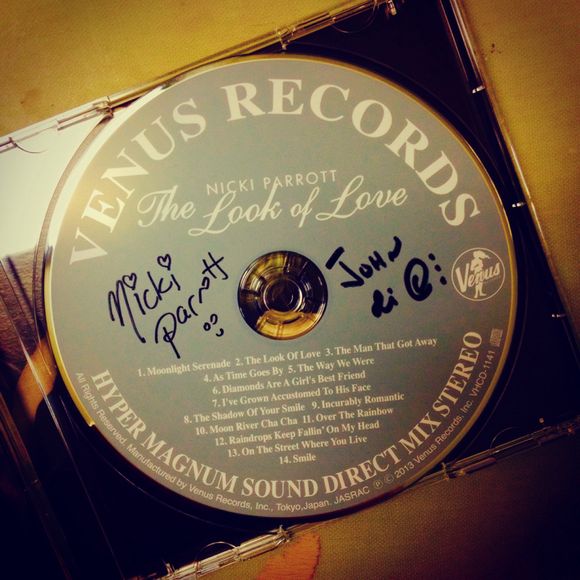 VENUS RECORDS
NICKI PARROTT
The Look of Love
Nicki
Parrott
JOHN
Venus
1. Moonlight Serenade 2. The Look Of Love 3. The Man That Got Away
4. As Time Goes By 5. The Way We Were
6. Diamonds Are A Girl's Best Friend
7. I've Grown Accustomed To His Face
8. The Shadow Of Your Smile 9. Incurably Romantic
10. Moon River Cha Cha 11. Over The Rainbow
12. Raindrops Keep Fallin' On My Head
13. On The Street Where You Live
14. Smile
HYPER MAGNUM SOUND DIRECT MIX STEREO
All Rights Reserved. Manufactured by Venus Records, Inc., Tokyo, Japan. JASRAC Ⓟ © 2013 Venus Records, Inc. VHCD-1141